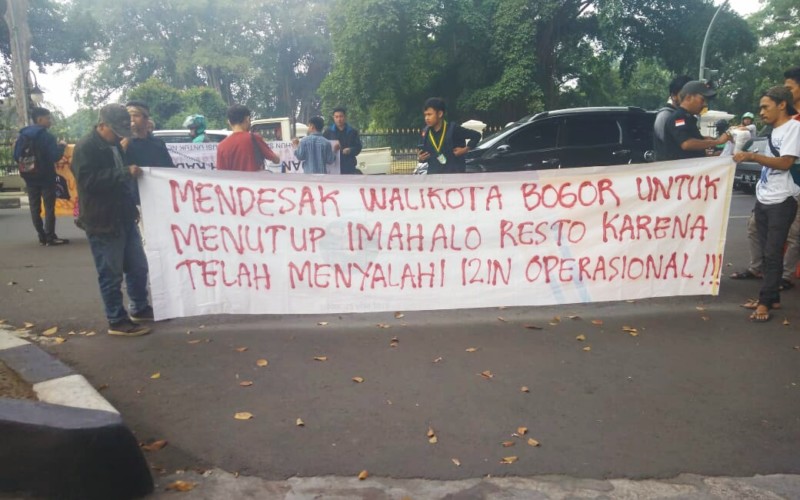 MENDESAK WALIKOTA BOGOR UNTUK
MENUTUP IMAHALO RESTO KARENA
TELAH MENYALAHI IZIN OPERASIONAL!!!